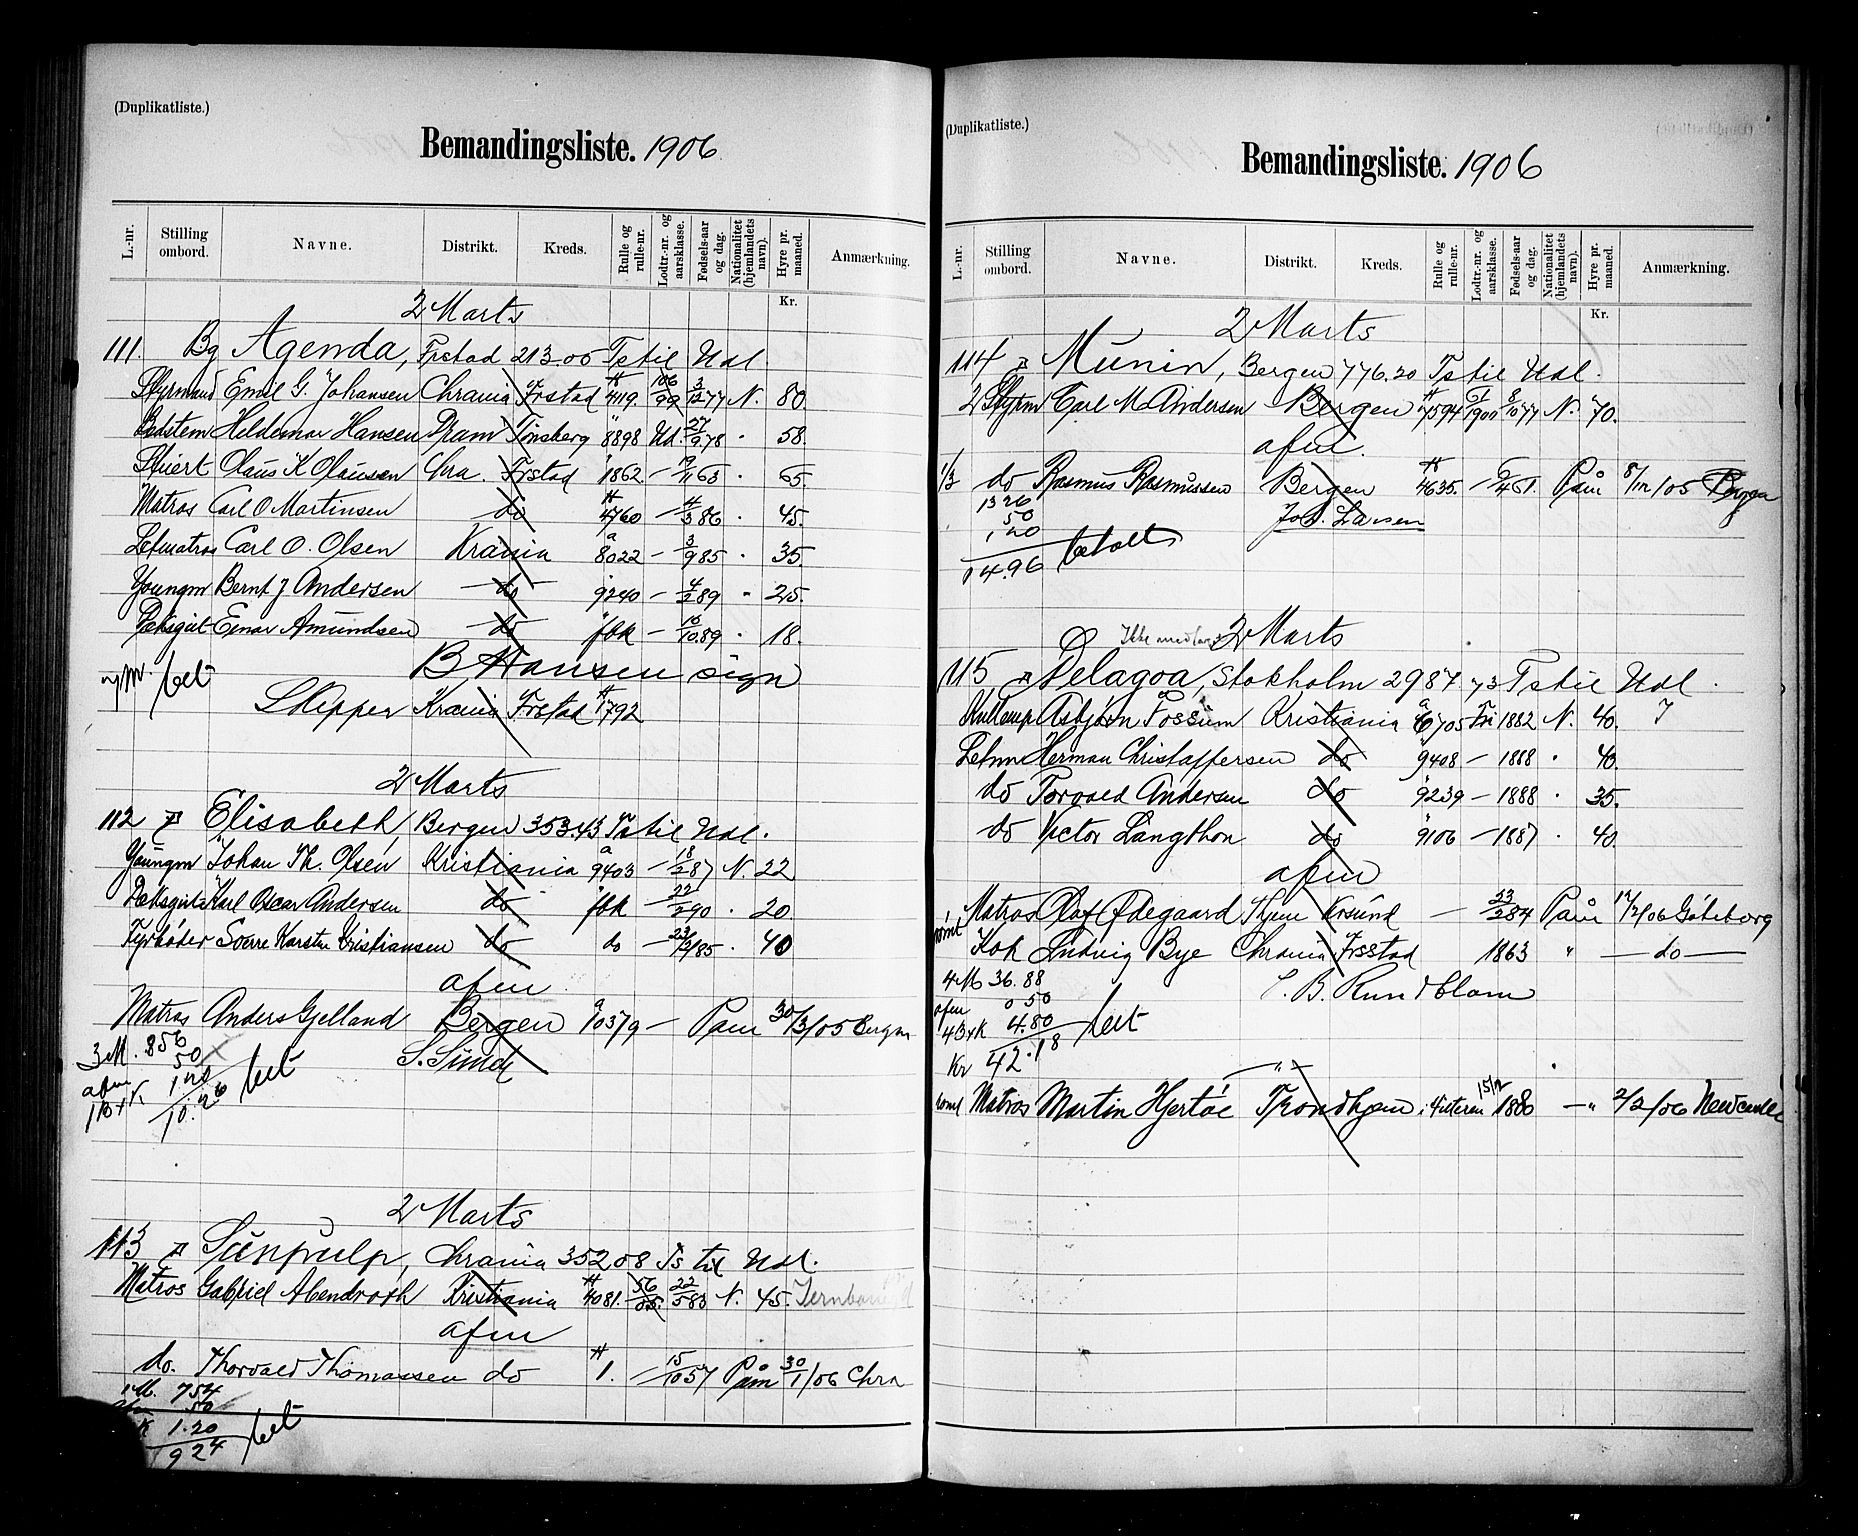 (Duplikatliste.)
Bemandingsliste. 1906
L.-nr. Stilling ombord. Navne. Distrikt. Kreds. Rulle og rulle-nr. Lodtr.-nr. og aarsklasse. Fødsels-aar og dag. Nationalitet (hjemlandets navn). Hyre pr. maaned. Anmærkning.
Kr.
2 Marts
111. Bg Agenda, Frstad 213.05 Ts til Udl.
Styrmand Emil G. Johansen Chrania Frstad H 4119. 106/99 3/12 77 N. 80.
Hildemar Hansen Dram Tönsberg " 8898 Ud. 27/9 78 " 58.
Stuert Olaus K Olausen Chra. Frstad " 1862. — 19/11 63 " 65.
Matros Carl O Martinsen do H 4760 — 4/3 86 " 45.
Letmatros Carl O. Olsen Krania a 8022 — 3/9 85 " 35.
Youngm Bernt J Andersen do " 9240 — 4/2 89 " 25.
Dæksgut Einar Amundsen do " fbk — 16/10 89 " 18.
B Hansen sign
bet
Skipper Krania Frstad H 792
2 Marts
112 Elisabeth, Bergen 353.43 Ts til Udl.
Youngm Johan Th. Olsen Kristiania a 9403 — 18/2 87 N. 22
Dæksgut Karl Oscar Andersen do fbk — 22/2 90 " 20
Fyrbøder Soerre Karsten Kristiansen do do — 23/12 85 " 40
afm
Matros Anders Gjelland Bergen a 10379 — Paam 30/3/05 Bergen
3 M. 8.56 S. Sunde
afm 50
1 B+K 1.20
10.26 bet
2 Marts
113 Sunpulp, Chrania 352.08 Ts til Udl.
Matros Gabriel Abendroth Kristiania H 4081. 56/05. 22/5 83 N. 45.
afm
do. Thorvald Thomassen do H 1. — 15/10 57 Paam 30/1/06 Chra
1 M. 7.54
50
K 1.20
9 24 bet
(Duplikatliste.)
Bemandingsliste. 1906
L.-nr. Stilling ombord. Navne. Distrikt. Kreds. Rulle og rulle-nr. Lodtr.-nr. og aarsklasse. Fødsels-aar og dag. Nationalitet (hjemlandets navn). Hyre pr. maaned. Anmærkning.
Kr.
2 Marts
114 Munin, Bergen 776.20 Ts til Udl.
2 Styrm Carl M. Andersen Bergen H 7594 8/10 77 N. 70.
afm.
1/3 do Rasmus Rasmussen Bergen H 4635. — Paam 8/12/05 Bergen
13 26 Larsen
50
1 20
14.96 betalt
Ikke 2 Marts
115 Delagoa, Stokholm 2987.73 Ts til Udl.
Kullemp Asbjørn Fossum Kristiania a 6705 Fri 1882 N. 40.
Letm Herman Christoffersen do " 9408 — 1888 " 40.
do Torvald Andersen do " 9239 — 1888 " 35.
do Victor Langthon do " 9106 — 1887 " 40.
afm
rømt Matros Olaf Ødegaard Thjem Krsund — 23/2 84 Paam 12/2/06 Göteborg
Kok Ludvig Bye Chrania Frsstad 1863 " — do —
4 M 36.88 C. B. Rundblom
afm 0 50
4 B+K 4.80 bet
Kr 42.18
— " —
rømt Matros Martin Hjertöe Trondhjem 15/12 1880 — " 2/2/06 Newcastle